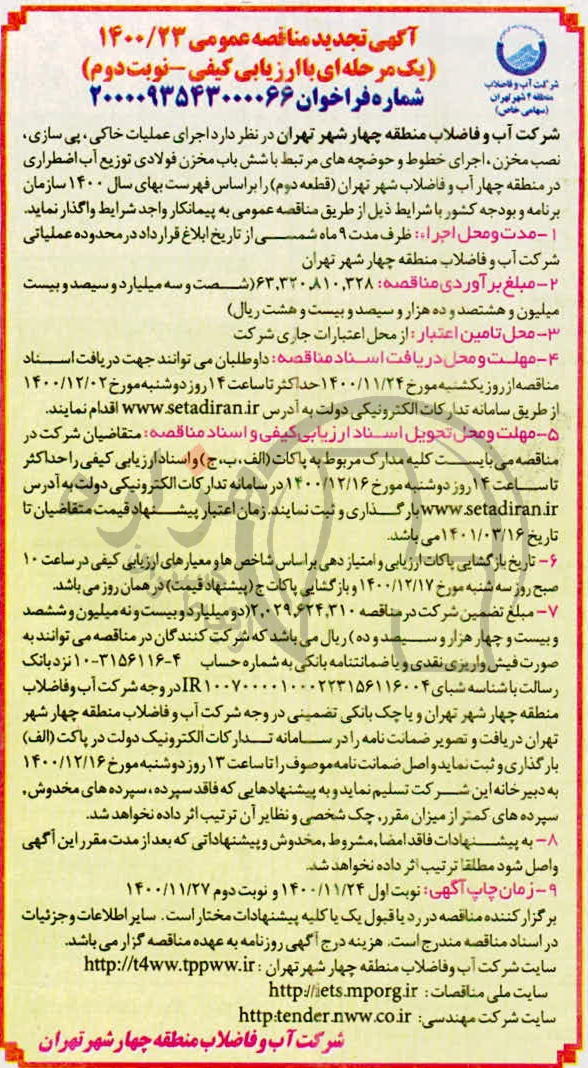 آگهی تجدید مناقصه عمومی ۱۴۰۰/۲۳
(یک مرحله ای با ارزیابی کیفی - نوبت دوم)
شماره فراخوان ۲۰۰۰۰۹۳۵۴۳۰۰۰۰۶۶
شرکت آب و فاضلاب
منطقه ۴ شهر تهران
(سهامی خاص)
شرکت آب و فاضلاب منطقه چهار شهر تهران در نظر دارد اجرای عملیات خاکی، پی سازی،
نصب مخزن، اجرای خطوط و حوضچه های مرتبط با شش باب مخزن فولادی توزیع آب اضطراری
در منطقه چهار آب و فاضلاب شهر تهران (قطعه دوم) را براساس فهرست بهای سال ۱۴۰۰ سازمان
برنامه و بودجه کشور با شرایط ذیل از طریق مناقصه عمومی به پیمانکار واجد شرایط واگذار نماید.
۱- مدت و محل اجراء: ظرف مدت ۹ ماه شمسی از تاریخ ابلاغ قرارداد در محدوده عملیاتی
شرکت آب و فاضلاب منطقه چهار شهر تهران
۲- مبلغ برآوردی مناقصه: ۶۳,۳۲۰,۸۱۰,۳۲۸ (شصت و سه میلیارد و سیصد و بیست
میلیون و هشتصد و ده هزار و سیصد و بیست و هشت ریال)
۳- محل تامین اعتبار: از محل اعتبارات جاری شرکت
۴- مهلت و محل دریافت اسناد مناقصه: داوطلبان می توانند جهت دریافت اسناد
مناقصه از روز یکشنبه مورخ ۱۴۰۰/۱۱/۲۴ حداکثر تا ساعت ۱۴ روز دوشنبه مورخ ۱۴۰۰/۱۲/۰۲
از طریق سامانه تدارکات الکترونیکی دولت به آدرس www.setadiran.ir اقدام نمایند.
۵- مهلت و محل تحویل اسناد ارزیابی کیفی و اسناد مناقصه: متقاضیان شرکت در
مناقصه می بایست کلیه مدارک مربوط به پاکات (الف، ب، ج) و اسناد ارزیابی کیفی را حداکثر
تا ساعت ۱۴ روز دوشنبه مورخ ۱۴۰۰/۱۲/۱۶ در سامانه تدارکات الکترونیکی دولت به آدرس
www.setadiran.ir بارگذاری و ثبت نمایند. زمان اعتبار پیشنهاد قیمت متقاضیان تا
تاریخ ۱۴۰۱/۰۳/۱۶ می باشد.
۶- تاریخ بازگشایی پاکات ارزیابی و امتیاز دهی براساس شاخص ها و معیارهای ارزیابی کیفی در ساعت ۱۰
صبح روز سه شنبه مورخ ۱۴۰۰/۱۲/۱۷ و بازگشایی پاکات ج (پیشنهاد قیمت) در همان روز می باشد.
۷- مبلغ تضمین شرکت در مناقصه ۲,۰۲۹,۶۲۴,۳۱۰ (دو میلیارد و بیست و نه میلیون و ششصد
و بیست و چهار هزار و سیصد و ده) ریال می باشد که شرکت کنندگان در مناقصه می توانند به
صورت فیش واریزی نقدی و یا ضمانتنامه بانکی به شماره حساب ۴-۳۱۵۶۱۱۶-۱۰ نزد بانک
رسالت با شناسه شبای IR۱۰۰۷۰۰۰۰۱۰۰۰۲۲۳۱۵۶۱۱۶۰۰۴ در وجه شرکت آب و فاضلاب
منطقه چهار شهر تهران و یا چک بانکی تضمینی در وجه شرکت آب و فاضلاب منطقه چهار شهر
تهران دریافت و تصویر ضمانت نامه را در سامانه تدارکات الکترونیک دولت در پاکت (الف)
بارگذاری و ثبت نماید و اصل ضمانت نامه موصوف را تا ساعت ۱۳ روز دوشنبه مورخ ۱۴۰۰/۱۲/۱۶
به دبیرخانه این شرکت تسلیم نماید و به پیشنهادهایی که فاقد سپرده، سپرده های مخدوش,
سپرده های کمتر از میزان مقرر, چک شخصی و نظایر آن ترتیب اثر داده نخواهد شد.
۸- به پیشنهادات فاقد امضا, مشروط, مخدوش و پیشنهاداتی که بعد از مدت مقرر این آگهی
واصل شود مطلقا ترتیب اثر داده نخواهد شد.
۹- زمان چاپ آگهی: نوبت اول ۱۴۰۰/۱۱/۲۴ و نوبت دوم ۱۴۰۰/۱۱/۲۷
برگزار کننده مناقصه در رد یا قبول یک یا کلیه پیشنهادات مختار است. سایر اطلاعات و جزئیات
در اسناد مناقصه مندرج است. هزینه درج آگهی روزنامه به عهده مناقصه گزار می باشد.
سایت شرکت آب و فاضلاب منطقه چهار شهر تهران: http://t4ww.tppww.ir
سایت ملی مناقصات: http://iets.mporg.ir
سایت شرکت مهندسی: http:tender.nww.co.ir
شرکت آب و فاضلاب منطقه چهار شهر تهران